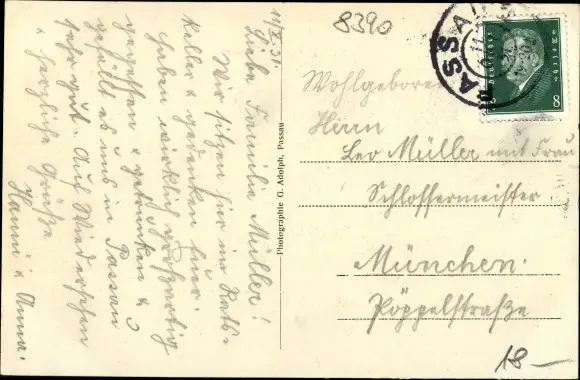 11/X.31.
Liebe Familie Müller!
Wir sitzen hier im Rats-
keller & gedenken Euer.
haben wirklich großartig
gegessen & getrunken &
gefällt es uns in Passau
sehr gut. Auf Wiedersehen
& herzliche Grüße
Hanni & Anna.
Photographie G. Adolph, Passau
8390
PASSAU
Deutsches Reich
8
Wohlgeboren
Herrn
Leo Müller mit Frau
Schlossermeister
München.
Pöppelstraße
18—